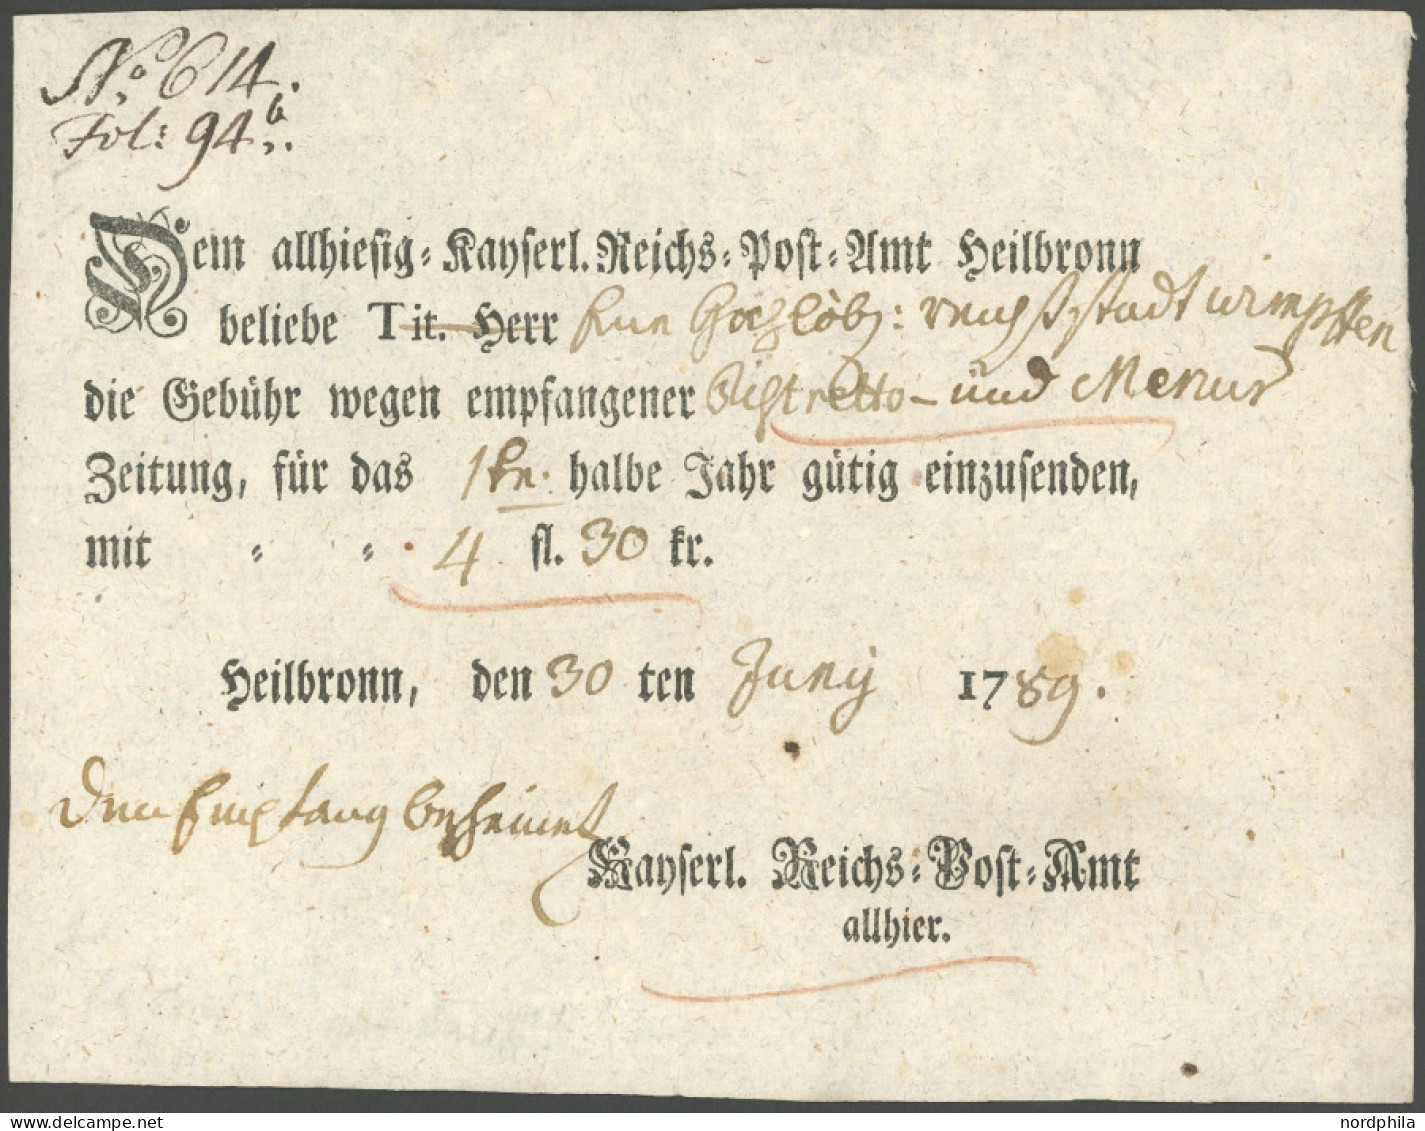 No. 614.
Fol: 94 b.
Dem allhiesig-Kayserl. Reichs-Post-Amt Heilbronn
beliebe Tit. Herr Eine Hochlöbl: reichsstadt wimpffen
die Gebühr wegen empfangener Ristretto- und Mercur
Zeitung, für das 1te halbe Jahr gütig einzusenden,
mit - - 4 fl. 30 kr.
Heilbronn, den 30 ten Juny 1789.
den Empfang bescheinet
Kayserl. Reichs-Post-Amt
allhier.
www.delcampe.net
nordphila